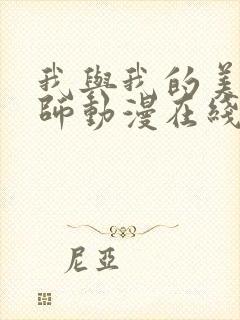 我與我的美
師動漫在綫
尼亞